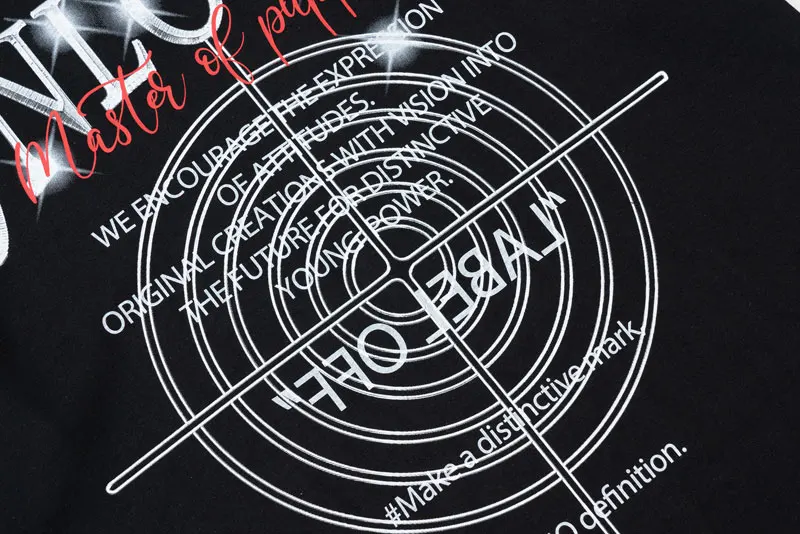 Master of
WE ENCOURAGE THE EXPRESSION
OF ATTITUDES.
ORIGINAL CREATIONS WITH VISION INTO
THE FUTURE FOR DISTINCTIVE
YOUNG POWER.
"LABEL OFF"
#Make a distinctive mark,
definition.